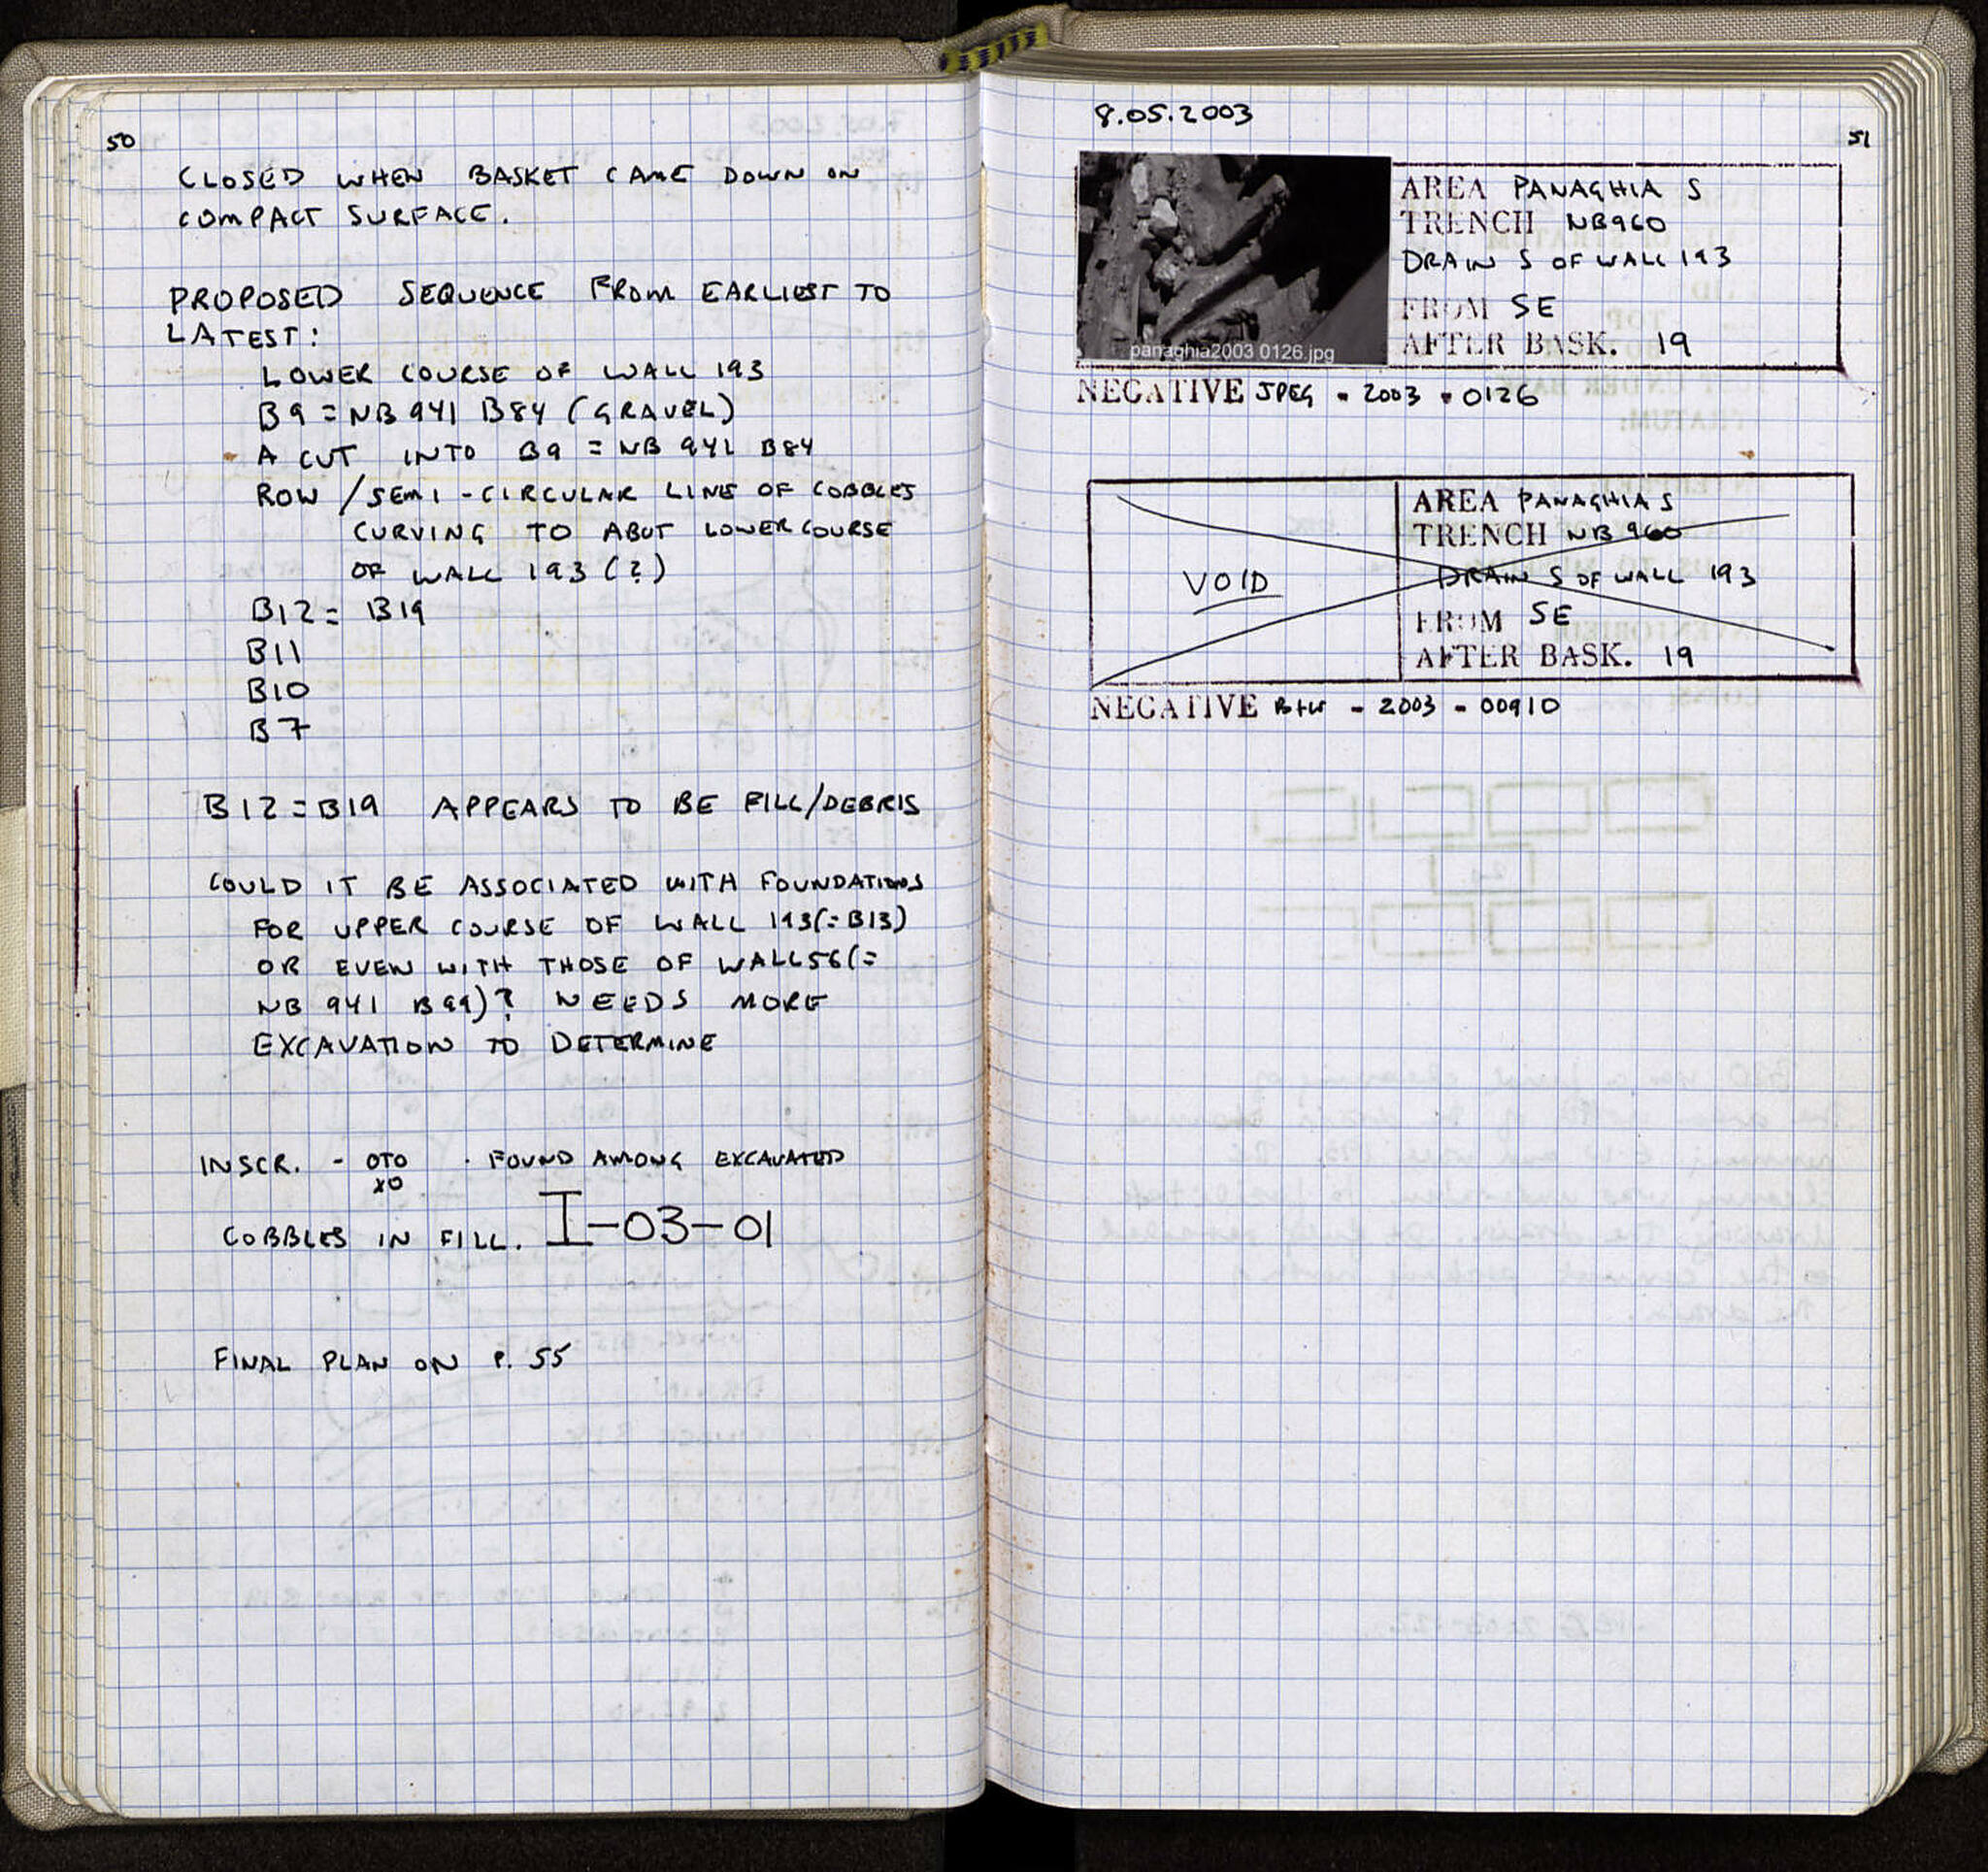 50
CLOSED WHEN BASKET CAME DOWN ON
COMPACT SURFACE.
PROPOSED SEQUENCE FROM EARLIEST TO
LATEST:
LOWER COURSE OF WALL 193
B9 = NB 941 B84 (GRAVEL)
A CUT INTO B9 = NB 941 B84
ROW / SEMI-CIRCULAR LINE OF COBBLES
CURVING TO ABUT LOWER COURSE
OF WALL 193 (?)
B12 = B19
B11
B10
B7
B12 = B19 APPEARS TO BE FILL/DEBRIS
COULD IT BE ASSOCIATED WITH FOUNDATIONS
FOR UPPER COURSE OF WALL 193(=B13)
OR EVEN WITH THOSE OF WALL 56(=
NB 941 B99)? NEEDS MORE
EXCAVATION TO DETERMINE
INSCR. - OTO · FOUND AMONG EXCAVATED
XO
COBBLES IN FILL. I-03-01
FINAL PLAN ON P. 55
8.05.2003
51
AREA PANAGHIA S
TRENCH NB960
DRAIN S OF WALL 193
FROM SE
AFTER BASK. 19
panaghia2003 0126.jpg
NEGATIVE JPEG - 2003 - 0126
AREA PANAGHIA S
TRENCH NB 960
VOID
DRAIN S OF WALL 193
FROM SE
AFTER BASK. 19
NEGATIVE B+W - 2003 - 00910